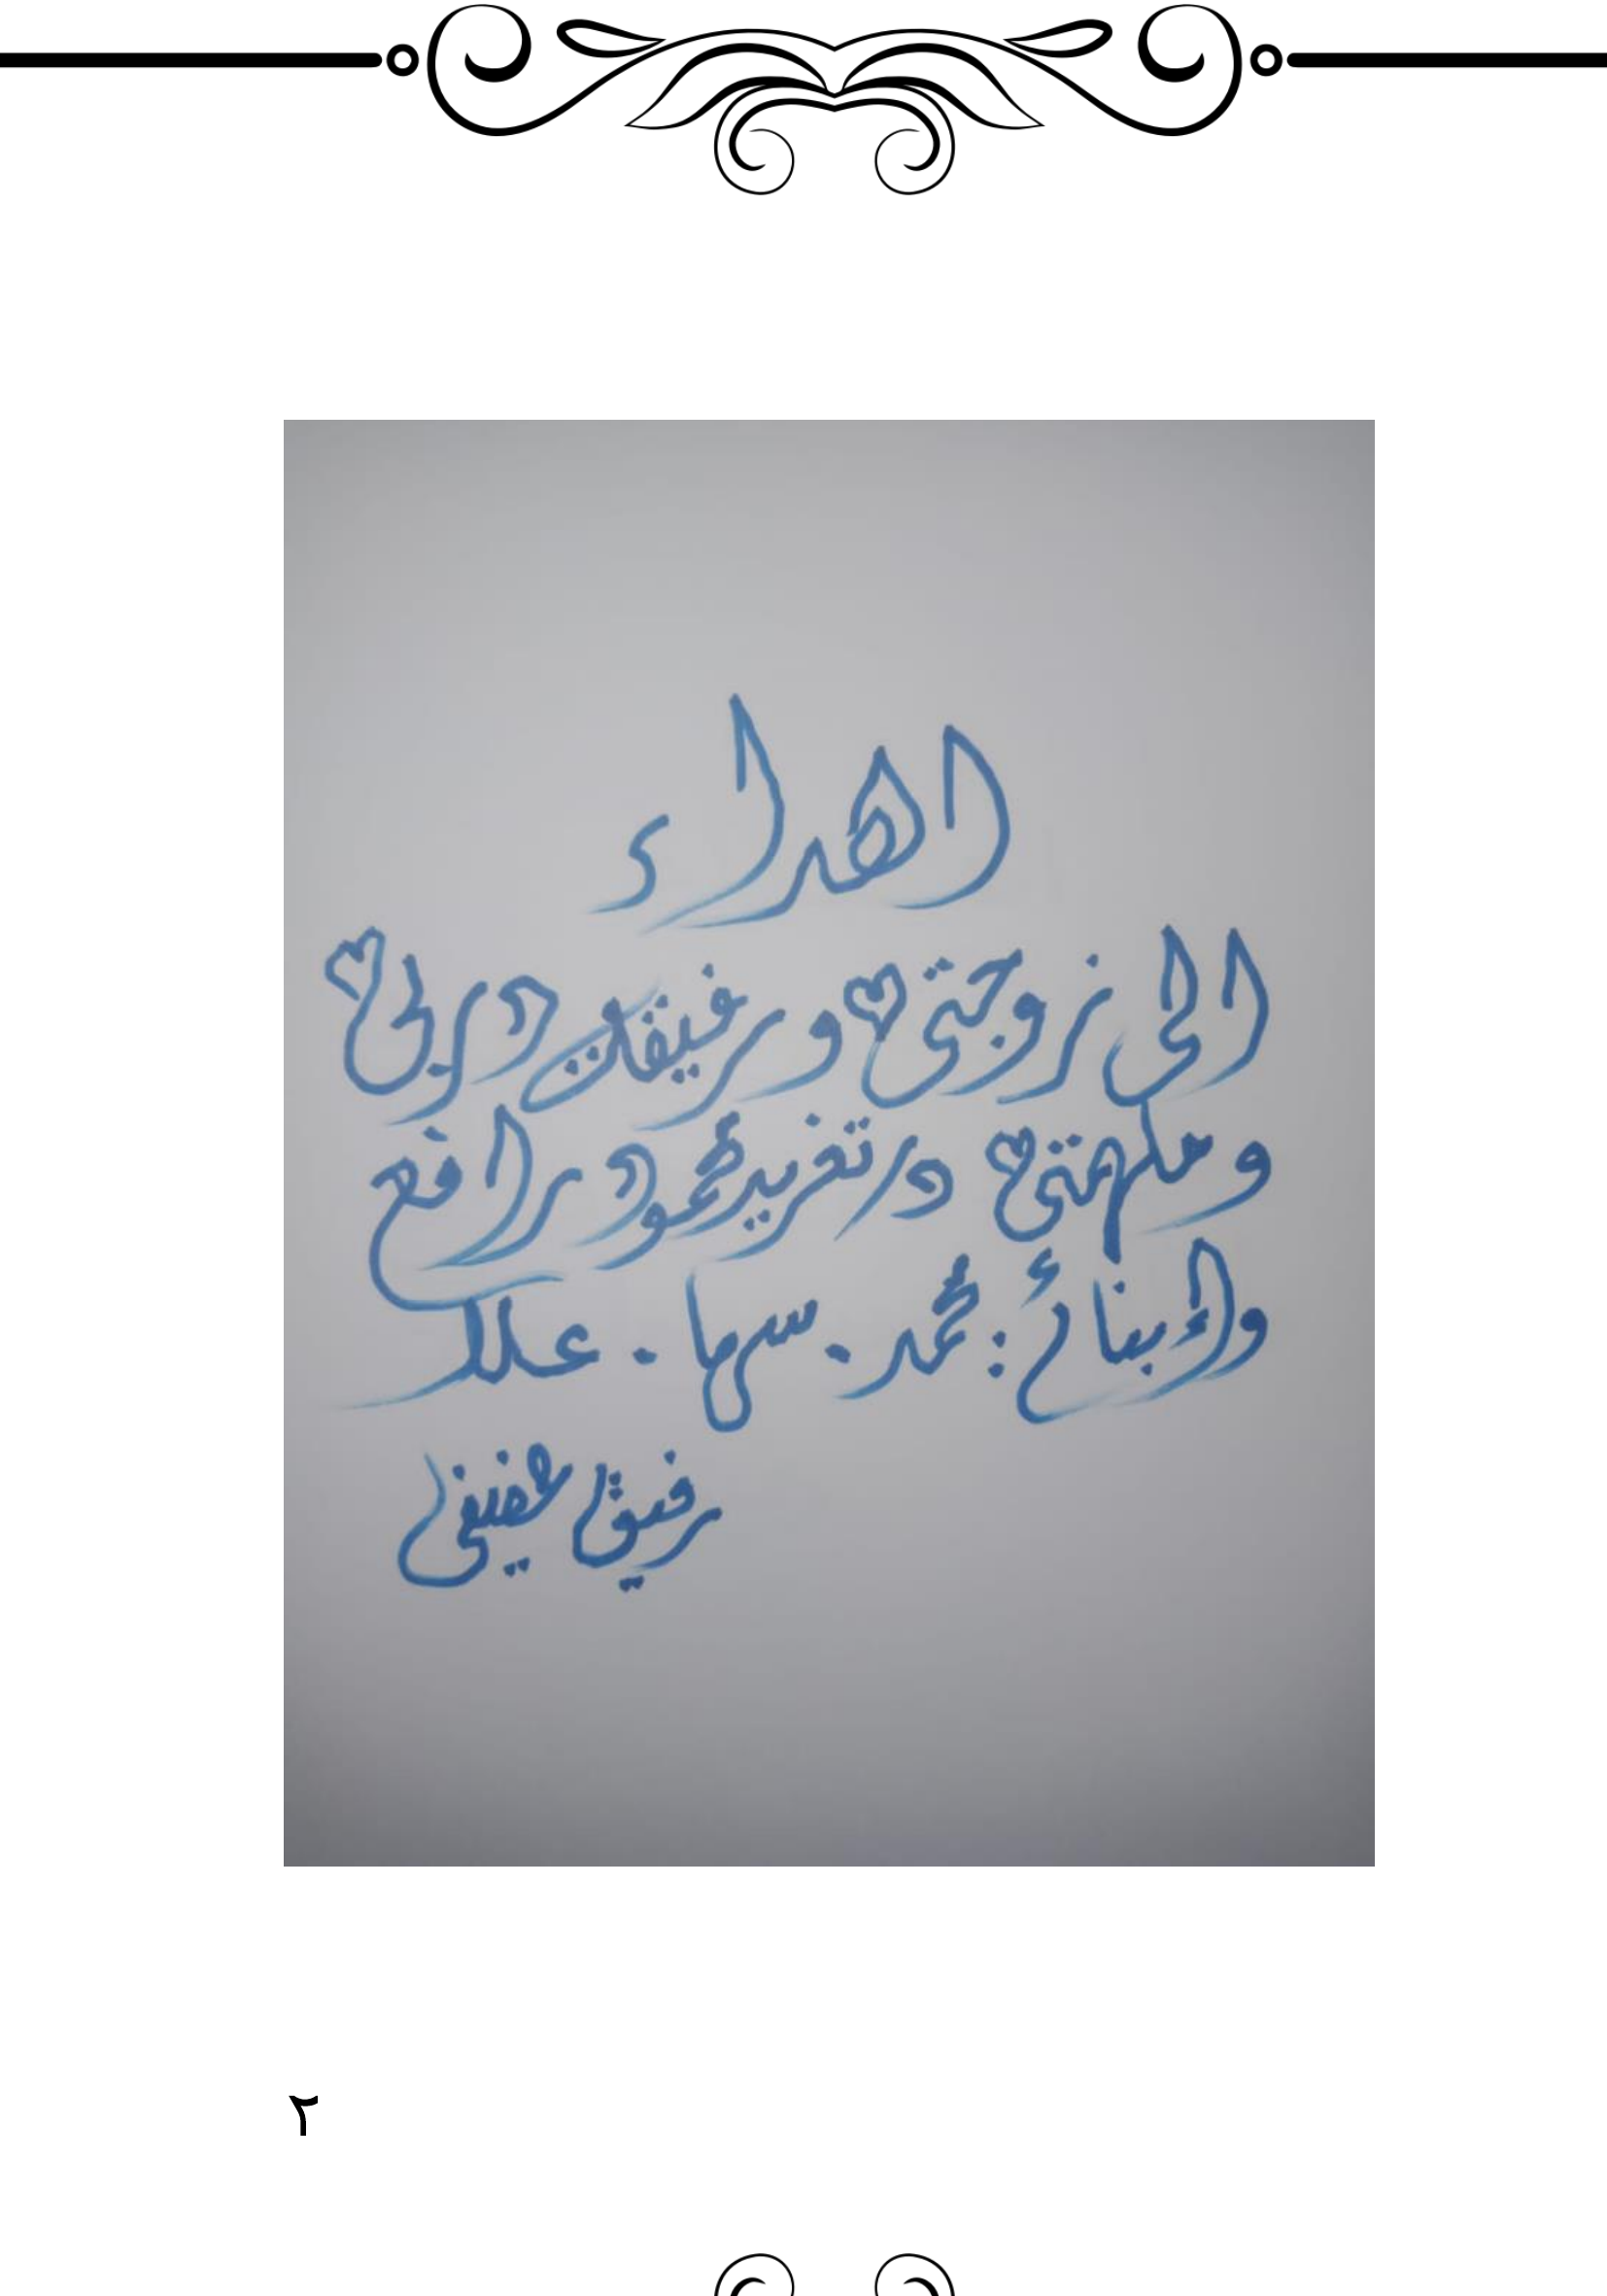 اهداء
الى زوجتي ورفيقة دربي
وملهمتي د. تغريد محمود رافع
وأبنائي : محمد . سما . علا
رفيق
٢